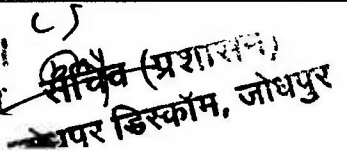 सचिव (प्रशासन)
डिस्कॉम, जोधपुर